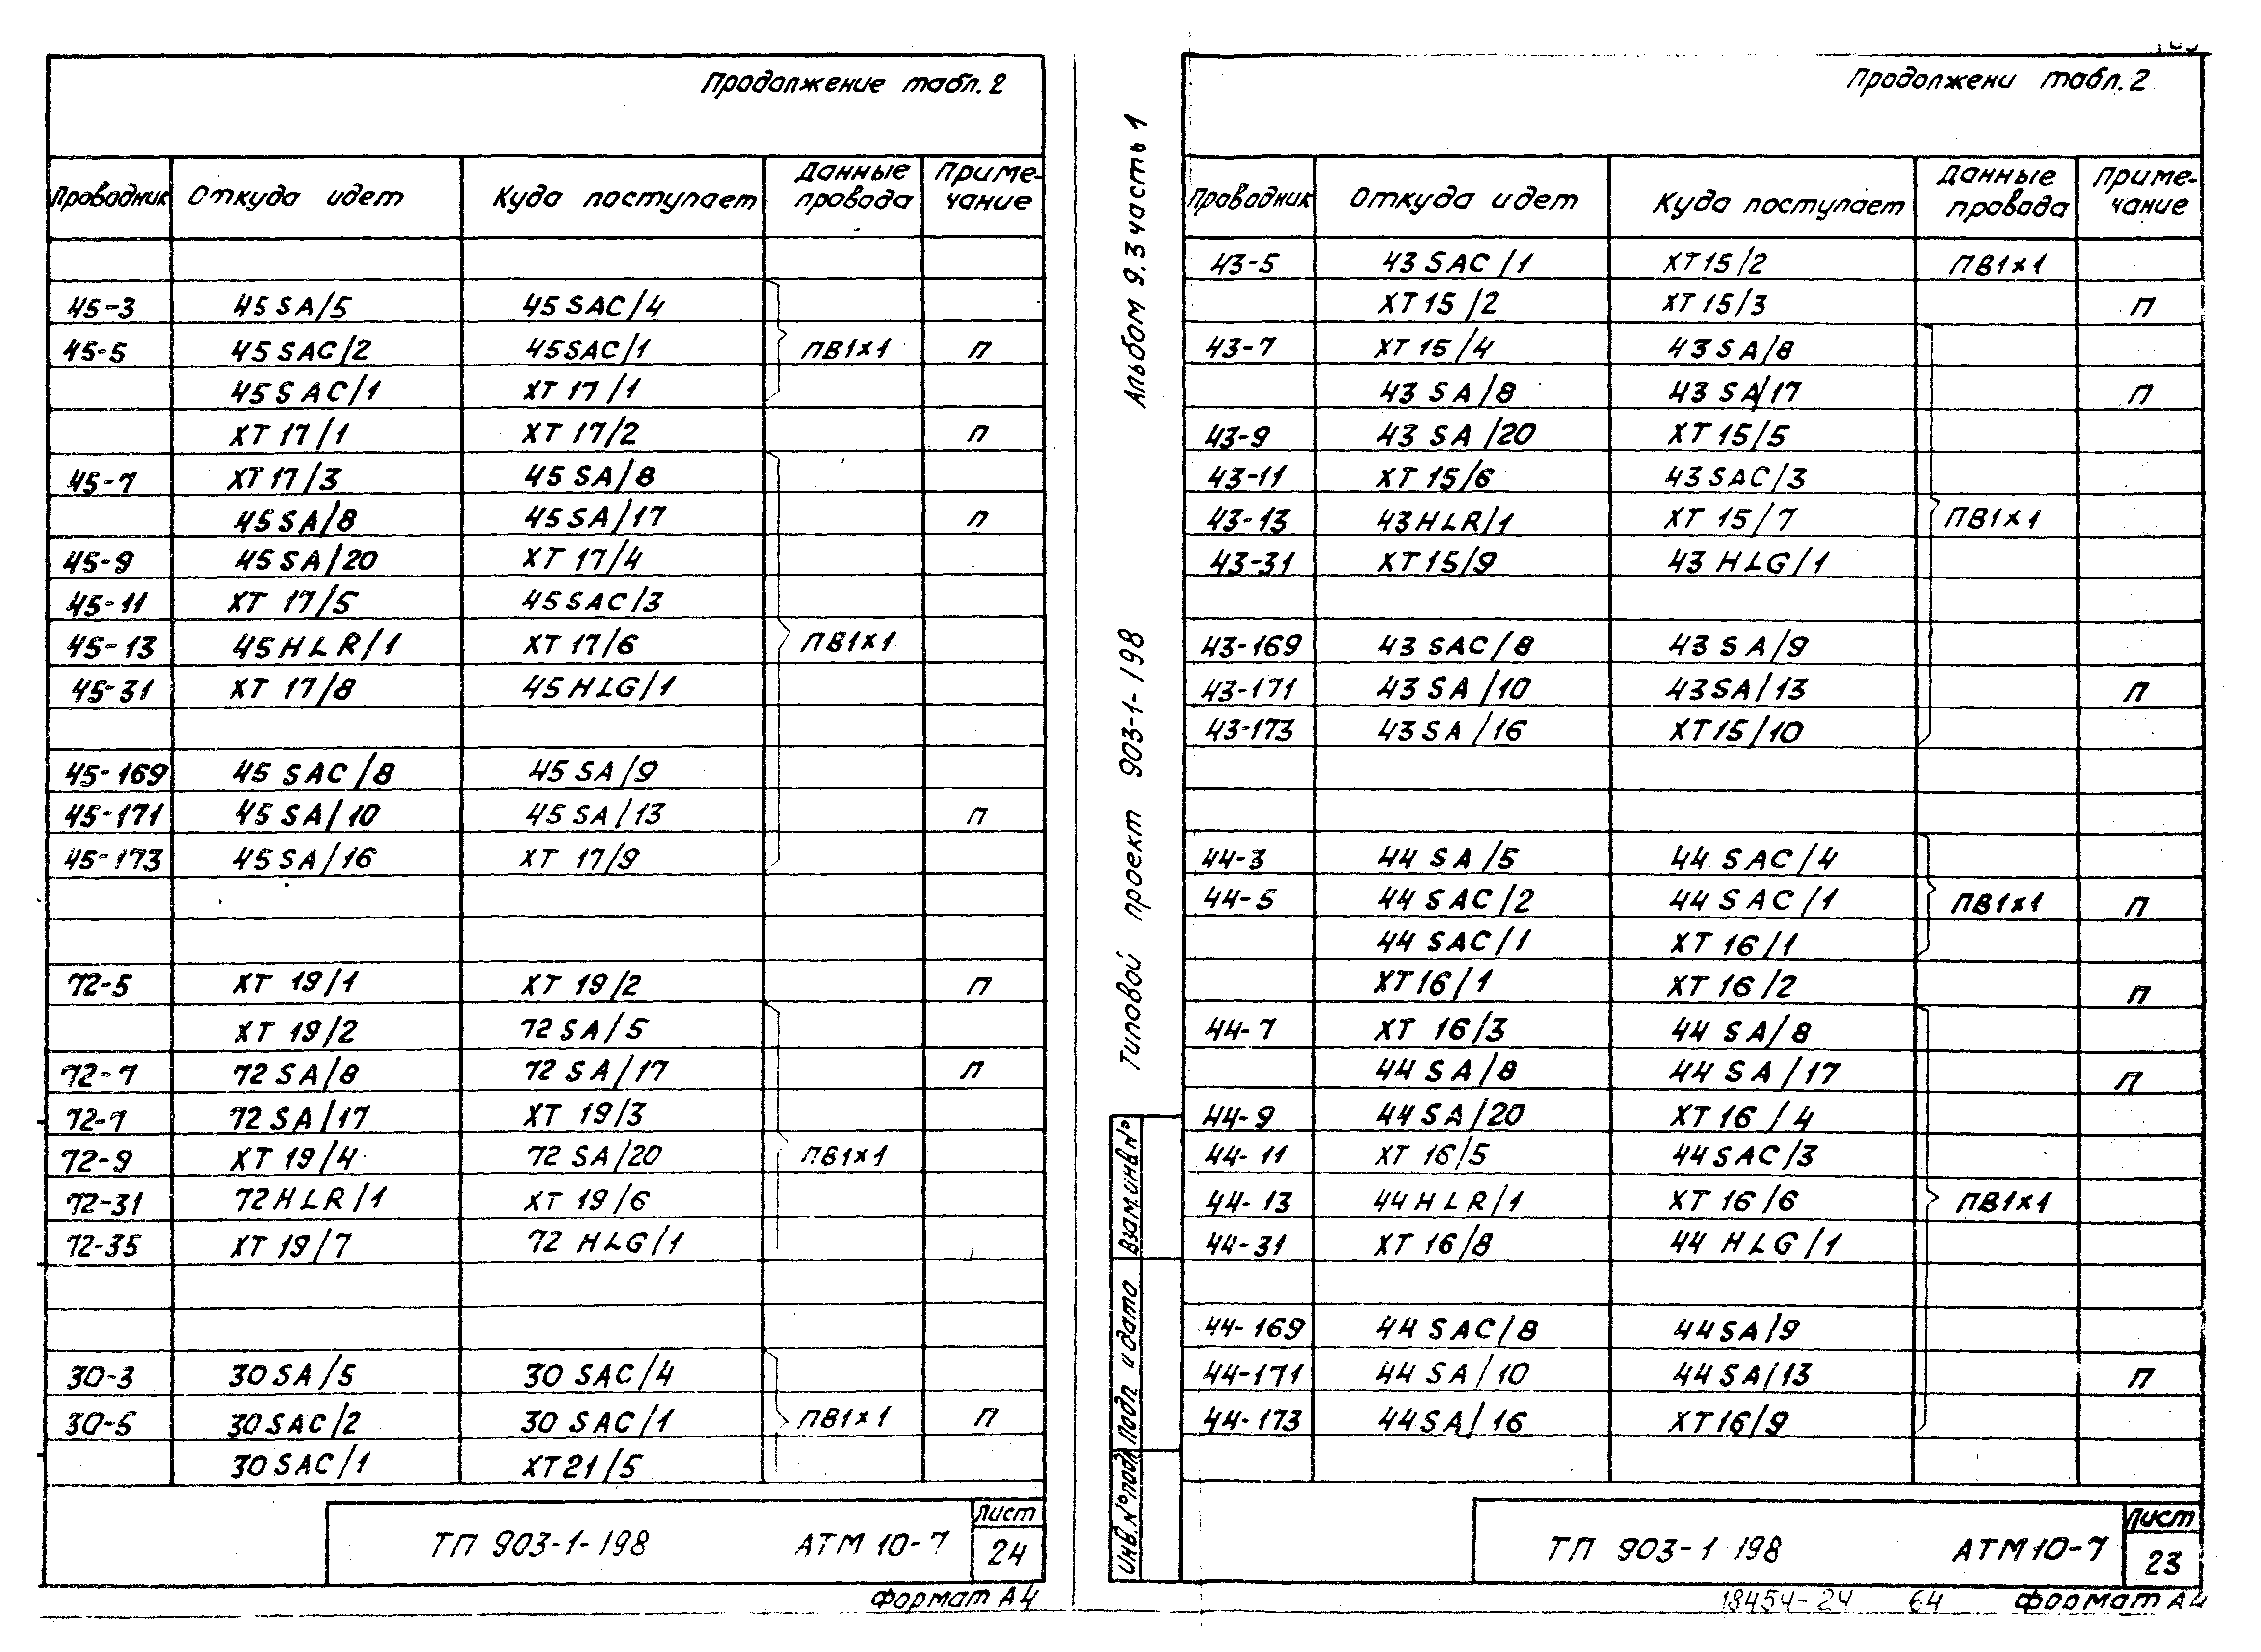 Продолжение табл.2
Проводник Откуда идет Куда поступает Данные провода Примечание
45-3 45SA/5 45SAC/4
45-5 45SAC/2 45SAC/1 ПВ1х1 П
45SAC/1 ХТ17/1
ХТ17/1 ХТ17/2 П
45-7 ХТ17/3 45SA/8
45SA/8 45SA/17 П
45-9 45SA/20 ХТ17/4
45-11 ХТ17/5 45SAC/3
45-13 45HLR/1 ХТ17/6 ПВ1х1
45-31 ХТ17/8 45HLG/1
45-169 45SAC/8 45SA/9
45-171 45SA/10 45SA/13 П
45-173 45SA/16 ХТ17/9
72-5 ХТ19/1 ХТ19/2 П
ХТ19/2 72SA/5
72-7 72SA/8 72SA/17 П
72-7 72SA/17 ХТ19/3
72-9 ХТ19/4 72SA/20 ПВ1х1
72-31 72HLR/1 ХТ19/6
72-35 ХТ19/7 72HLG/1
30-3 30SA/5 30SAC/4
30-5 30SAC/2 30SAC/1 ПВ1х1 П
30SAC/1 ХТ21/5
ТП 903-1-198 АТМ10-7 Лист 24
Формат А4
Альбом 9.3 часть 1
Типовой проект 903-1-198
Взам.инв.N°
Подп. и дата
Инв.N°подл.
Продолжени табл.2
Проводник Откуда идет Куда поступает Данные провода Примечание
43-5 43SAC/1 ХТ15/2 ПВ1х1
ХТ15/2 ХТ15/3 П
43-7 ХТ15/4 43SA/8
43SA/8 43SA/17 П
43-9 43SA/20 ХТ15/5
43-11 ХТ15/6 43SAC/3
43-13 43HLR/1 ХТ15/7 ПВ1х1
43-31 ХТ15/9 43HLG/1
43-169 43SAC/8 43SA/9
43-171 43SA/10 43SA/13 П
43-173 43SA/16 ХТ15/10
44-3 44SA/5 44SAC/4
44-5 44SAC/2 44SAC/1 ПВ1х1 П
44SAC/1 ХТ16/1
ХТ16/1 ХТ16/2 П
44-7 ХТ16/3 44SA/8
44SA/8 44SA/17 П
44-9 44SA/20 ХТ16/4
44-11 ХТ16/5 44SAC/3
44-13 44HLR/1 ХТ16/6 ПВ1х1
44-31 ХТ16/8 44HLG/1
44-169 44SAC/8 44SA/9
44-171 44SA/10 44SA/13 П
44-173 44SA/16 ХТ16/9
ТП 903-1 198 АТМ10-7 Лист 23
18454-24 64 Формат А4